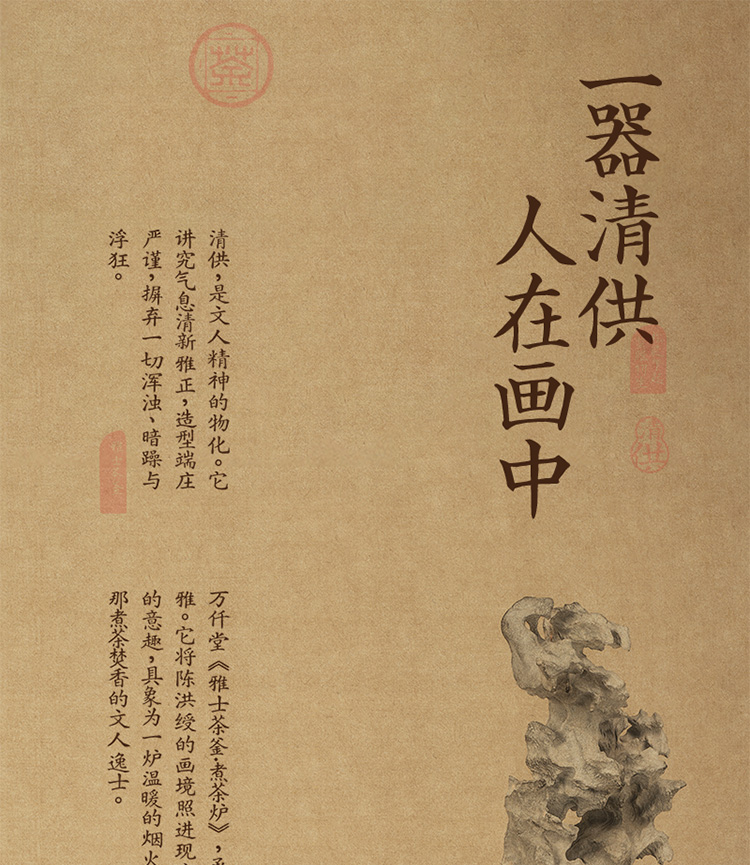 一器清供
人在画中
清供
茶
清供，是文人精神的物化。它
讲究气息清新雅正，造型端庄
严谨，摒弃一切浑浊、暗躁与
浮狂。
万仟堂《雅士茶釜·煮茶炉》，
雅。它将陈洪绶的画境照进现
的意趣，具象为一炉温暖的烟火
那煮茶焚香的文人逸士。